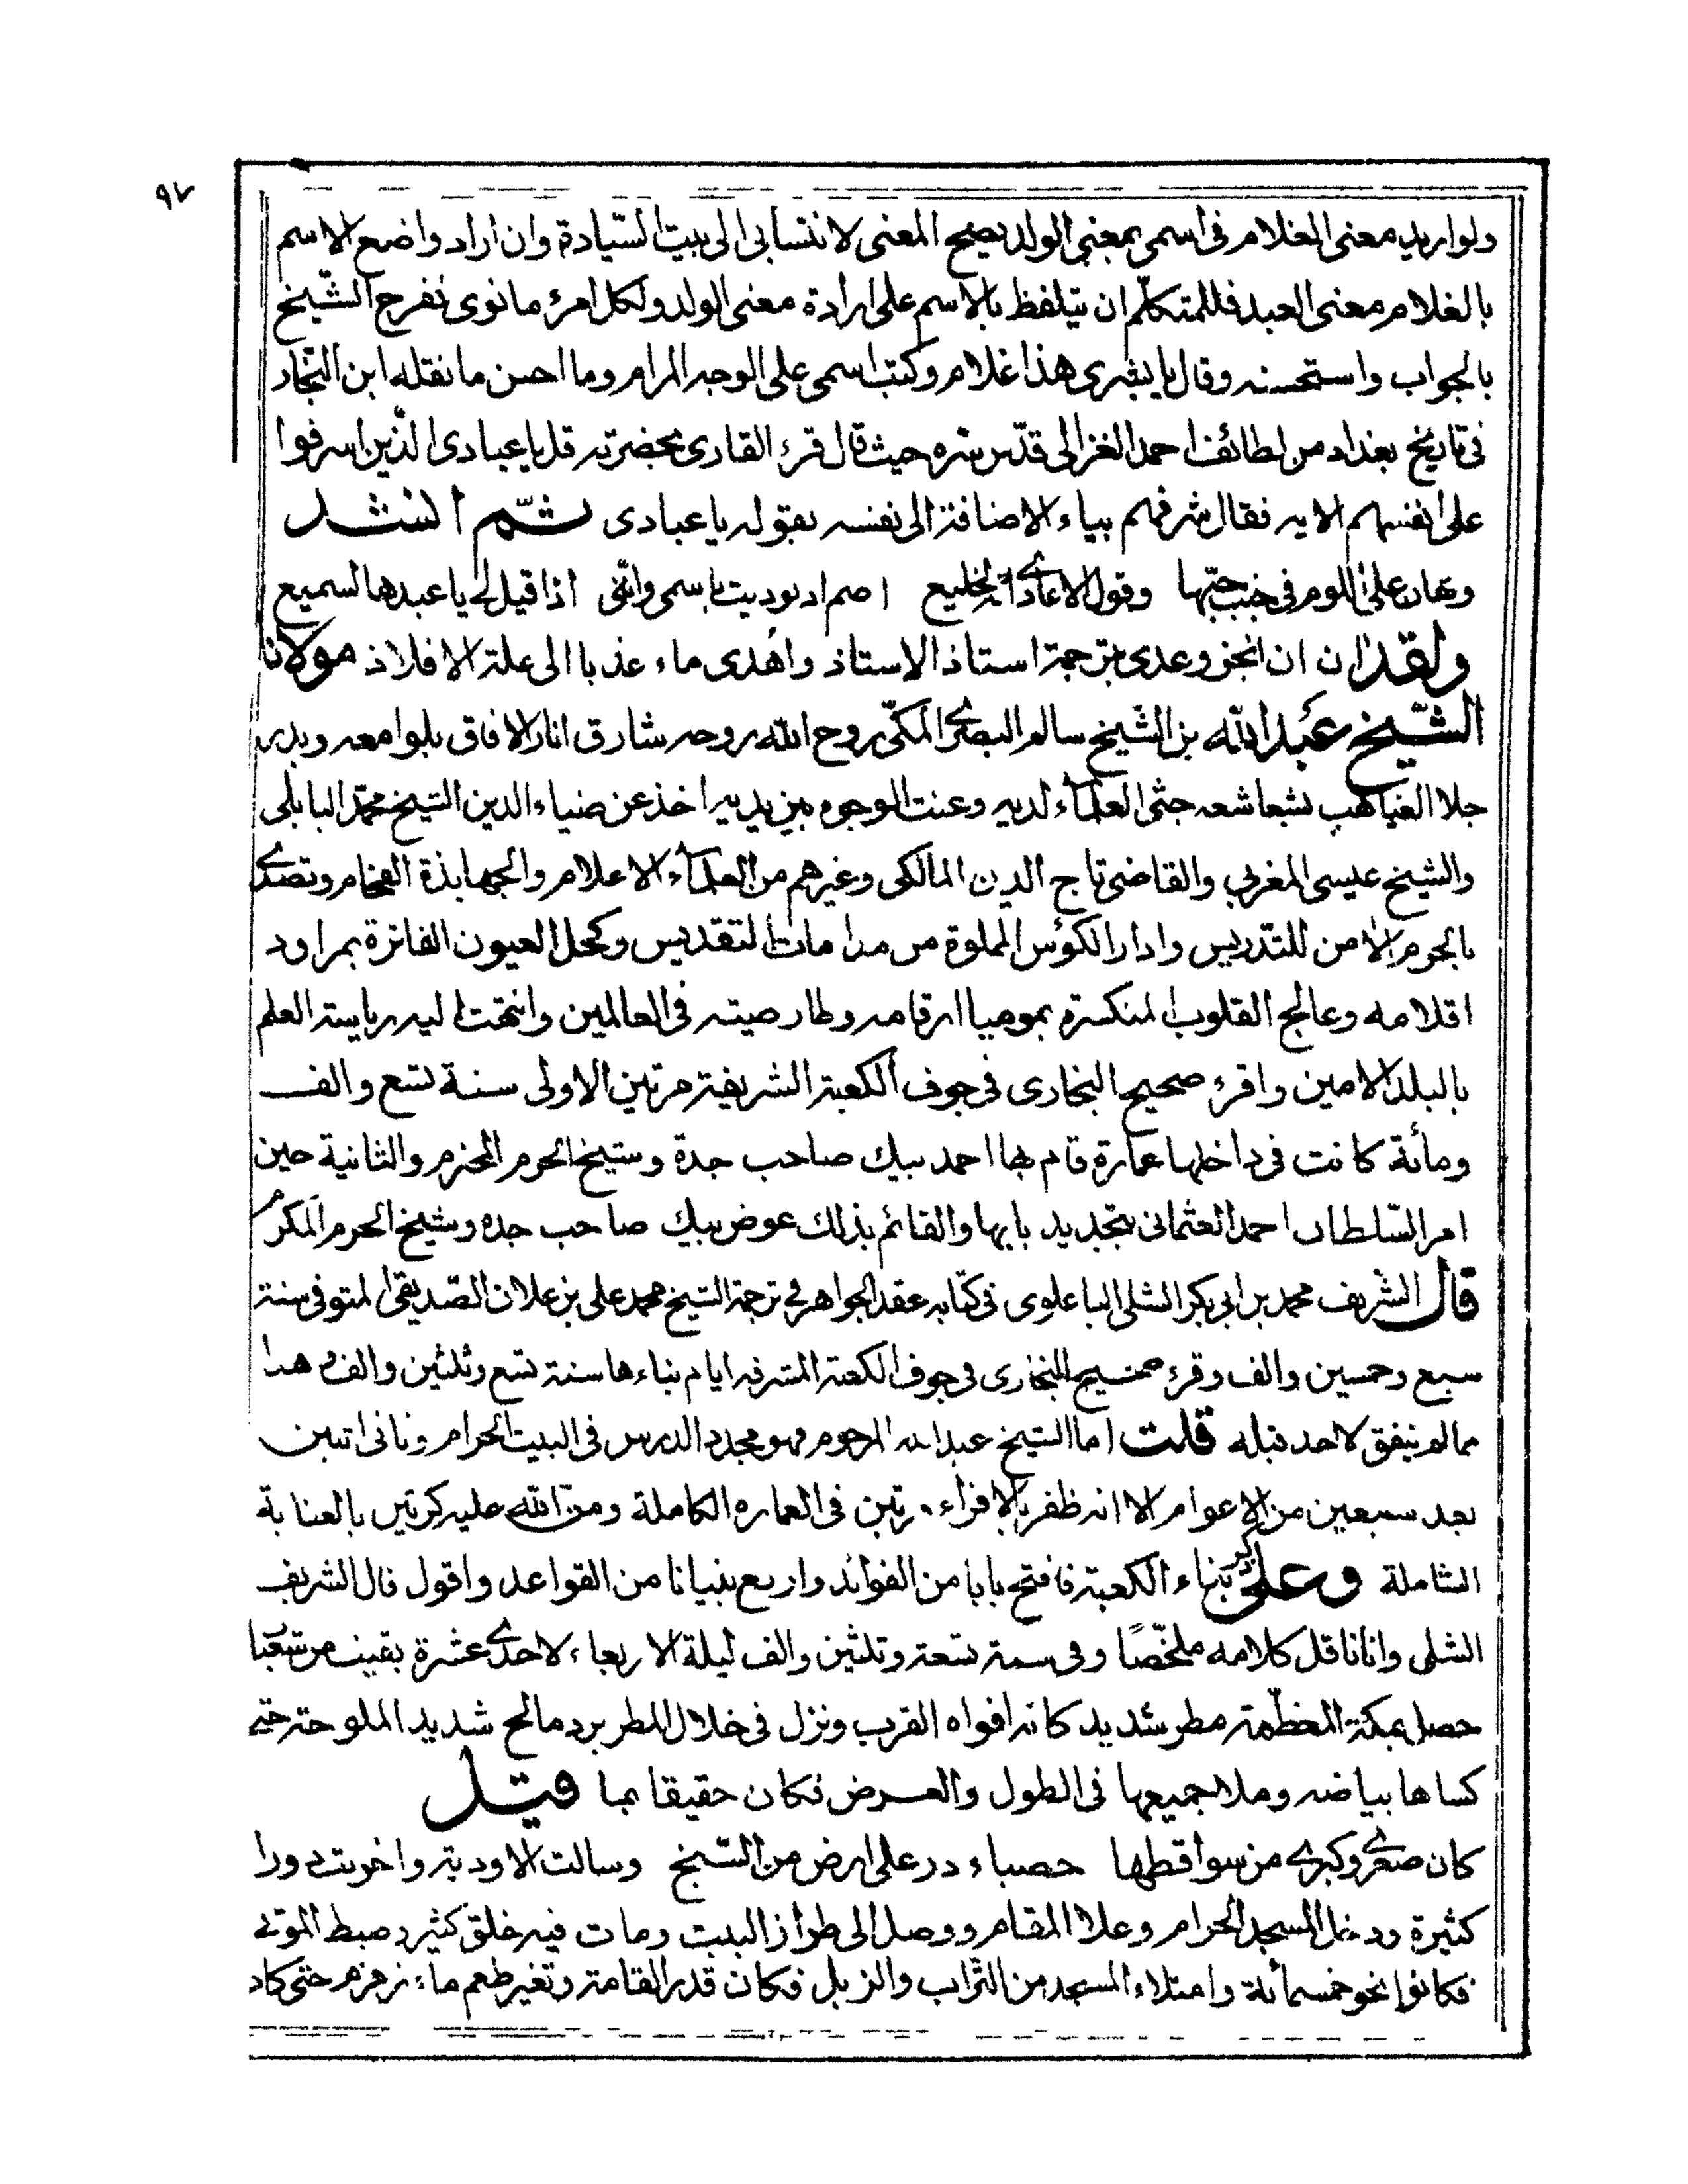 ٩٧
ولو اريد معنى الغلام فى اسمى بمعنى الولد يصح المعنى لانتسابى الى بيت السّيادة وان اراد واضع الاسم
بالغلام معنى العبد فللمتكلّم ان يتلفظ بالاسم على ارادة معنى الولد ولكل امرئ ما نوى نفرج الشّيخ
بالجواب واستحسنه وقال يا بشرى هذا غلام وكتب اسمى على الوجه المرام وما احسن ما نقله ابن النّجار
فى تاريخ بغداد من لطائف احمد الغزالى قدّس سّره حيث قال قرء القارى بحضرته قل يا عبادى الّذين اسرفوا
على انفسهم الايه فقال شرفهم بياء الاضافة الى نفسه بقوله يا عبادى ثمّ انشد
وهان على اللوم فى جنب حبّها وقول الاعادى انه لخليع اصم اذ نوديت باسمى واننى اذا قيل لى يا عبدها لسميع
ولقد ان ان انجز وعدى بترجمة استاذ الاستاذ واُهدى ماء عذبا الى علة الافلاذ مولانا
الشّيخ عبد الله بن الشّيخ سالم البصرى المكّى روح الله روحه شارق انار الافاق بلوامعه وبدر
جلا الغياهب بشعاشعه جثى العلمآء لديه وعنت الوجوه بين يديه اخذ عن ضياء الدين الشيخ محمّد البابلى
والشيخ عيسى المغربى والقاضى تاج الدين المالكى وغيرهم من العلمآء الاعلام والجهابذة الفخام وتصدى
بالحرم الامن للتّدريس وادار الكؤس المملوة من مدامات التقديس وكحل العيون الفاترة بمراود
اقلامه وعالج القلوب المنكسرة بموميا ارقامه وطار صيته فى العالمين وانتهت اليه رياسة العلم
بالبلد الامين واقرء صحيح البخارى فى جوف الكعبة الشريفة مرتين الاولى سنة تسع والف
ومائة كانت فى داخلها عمارة قام بها احمد بيك صاحب جدة وشيخ الحرم المحترم والثانية حين
امر السّلطان احمد العثمانى بتجديد بابها والقائم بذلك عوض بيك صاحب جده وشيخ الحرم المكرم
قال الشريف محمد بن ابى بكر الشلى الباعلوى فى كتابه عقد الجواهر فى ترجمة الشيخ محمد على بن علان الصّديقى المتوفى سنة
سبع وخمسين والف وقرء صحيح البخارى فى جوف الكعبة المشرفه ايام بناءها سنة تسع وثلثين والف وهذا
مما لم يتفق لاحد قبله قلت اما الشيخ عبد الله المرحوم فهو مجدد الدرس فى البيت الحرام وثانى اثنين
بعد سبعين من الاعوام الا انه ظفر بالاقراء مرتين فى العماره الكاملة ومنّ الله عليه كرتين بالعناية
الشاملة وعلى ذكر بناء الكعبة فافتح بابا من الفوائد وارفع بنيانا من القواعد واقول قال الشريف
الشلى وانا ناقل كلامه ملخّصًا وفى سنة تسعة وثلثين والف ليلة الاربعاء لاحدى عشرة بقيت من شعبا
حصل بمكة المعظّمة مطر شديد كانه افواه القرب ونزل فى خلال المطر برد مالح شديد الملوحة حتى
كساها بياضه وملا جميعها فى الطول والعرض فكان حقيقا بما قيل
كان صغرى وكبرى من سواقطها حصباء در على ارض من السّبخ وسالت الاودية واخربت دورا
كثيرة ودخل المسجد الحرام وعلا المقام ووصل الى طراز البيت ومات فيه خلق كثير وضبط الموتى
فكانوا نحو خمسمائة وامتلاء المسجد من التّراب والزبل فكان قدر القامة وتغير طعم ماء زمزم حتى كاد